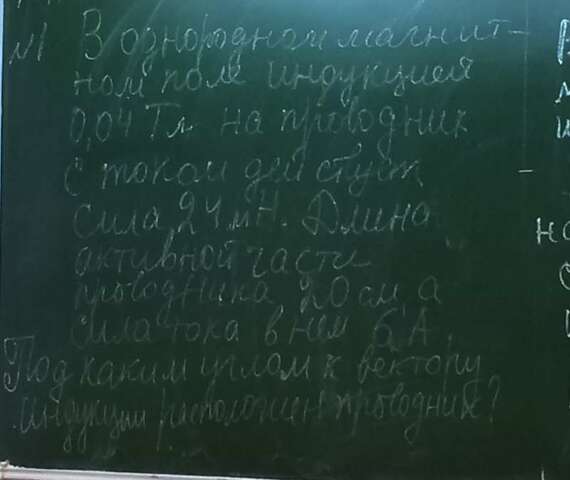 №1 В однородном магнит-
ном поле индукцией
0,04 Тл на проводник
с током действует
сила 24 мН. Длина
активной части
проводника 20 см, а
сила тока в нем 6 А.
Под каким углом к вектору
индукции расположен проводник?
В
м
и
на
с